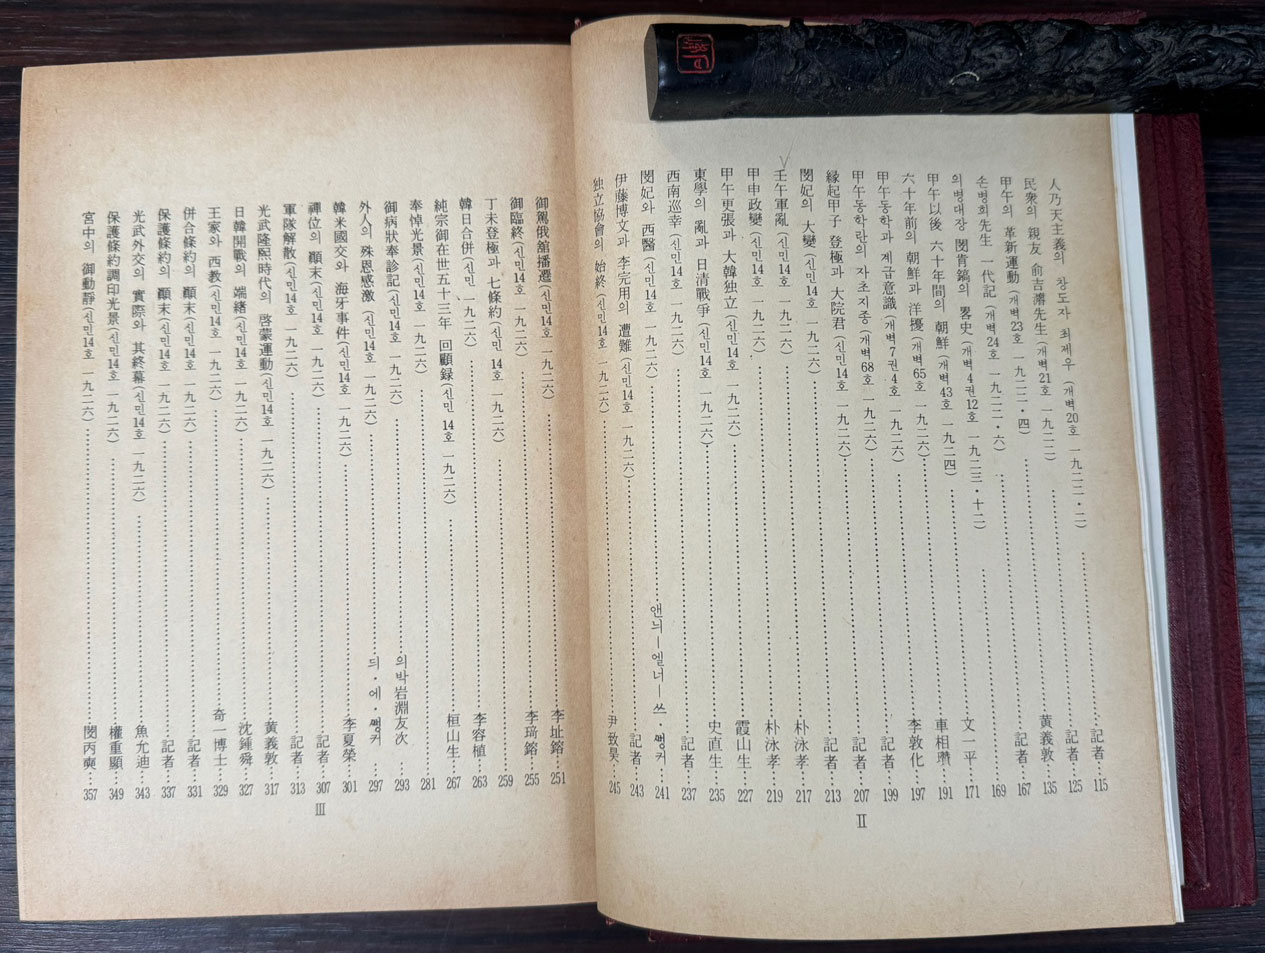 人乃天主義의 창도자 최제우 (개벽20호 一九二二·二)……記者…115
民衆의 親友 兪吉濬先生(개벽21호 一九二二)……記者…125
甲午의 革新運動(개벽23호 一九二二·四)……黄義敦…135
손병희先生 一代記(개벽24호 一九二二·六)……記者…167
의병대장 閔肯鎬의 畧史(개벽4권12호 一九二三·十二)……169
甲午以後 六十年間의 朝鮮(개벽43호 一九二四)……文一平…171
六十年前의 朝鮮과 洋擾(개벽65호 一九二六)……車相瓚…191
甲午동학과 계급意識(개벽7권4호 一九二六)……李敦化…197
甲午동학란의 자초지종(개벽68호 一九二六)……記者…199
緣起甲子 登極과 大院君(신민14호 一九二六)……記者…207
閔妃의 大變(신민14호 一九二六)……記者…213
壬午軍亂(신민14호 一九二六)……朴泳孝…217
甲申政變(신민14호 一九二六)……朴泳孝…219
甲午更張과 大韓独立(신민14호 一九二六)……霞山生…227
東學의 亂과 日清戰爭(신민14호 一九二六)……史直生…235
西南巡幸(신민14호 一九二六)……記者…237
閔妃와 西醫(신민14호 一九二六)……앤늬―엘너―쓰·쎙커…241
伊藤博文과 李完用의 遭難(신민14호 一九二六)……記者…243
独立協會의 始終(신민14호 一九二六)……尹致昊…245
Ⅱ
御駕俄舘播遷(신민14호 一九二六)……李址鎔…251
御臨終(신민14호 一九二六)……李琦鎔…255
丁未登極과 七條約(신민14호 一九二六)……259
韓日合併(신민14호 一九二六)……李容植…263
純宗御在世五十三年 回顧録(신민14호 一九二六)……桓山生…267
奉悼光景(신민14호 一九二六)……281
御病狀奉診記(신민14호 一九二六)……의박岩淵友次…293
外人의 殊恩感激(신민14호 一九二六)……듸·에·쎙커…297
韓米國交와 海牙事件(신민14호 一九二六)……李夏榮…301
禪位의 顚末(신민14호 一九二六)……記者…307
軍隊解散(신민14호 一九二六)……記者…313
光武隆熙時代의 啓蒙運動(신민14호 一九二六)……黄義敦…317
日韓開戰의 端緖(신민14호 一九二六)……沈鍾舜…327
王家와 西教(신민14호 一九二六)……奇一博士…329
併合條約의 顚末(신민14호 一九二六)……記者…331
保護條約의 顚末(신민14호 一九二六)……記者…337
光武外交의 實際와 其終幕(신민14호 一九二六)……魚允迪…343
保護條約調印光景(신민14호 一九二六)……權重顯…349
宮中의 御動靜(신민14호 一九二六)……閔丙奭…357
Ⅲ